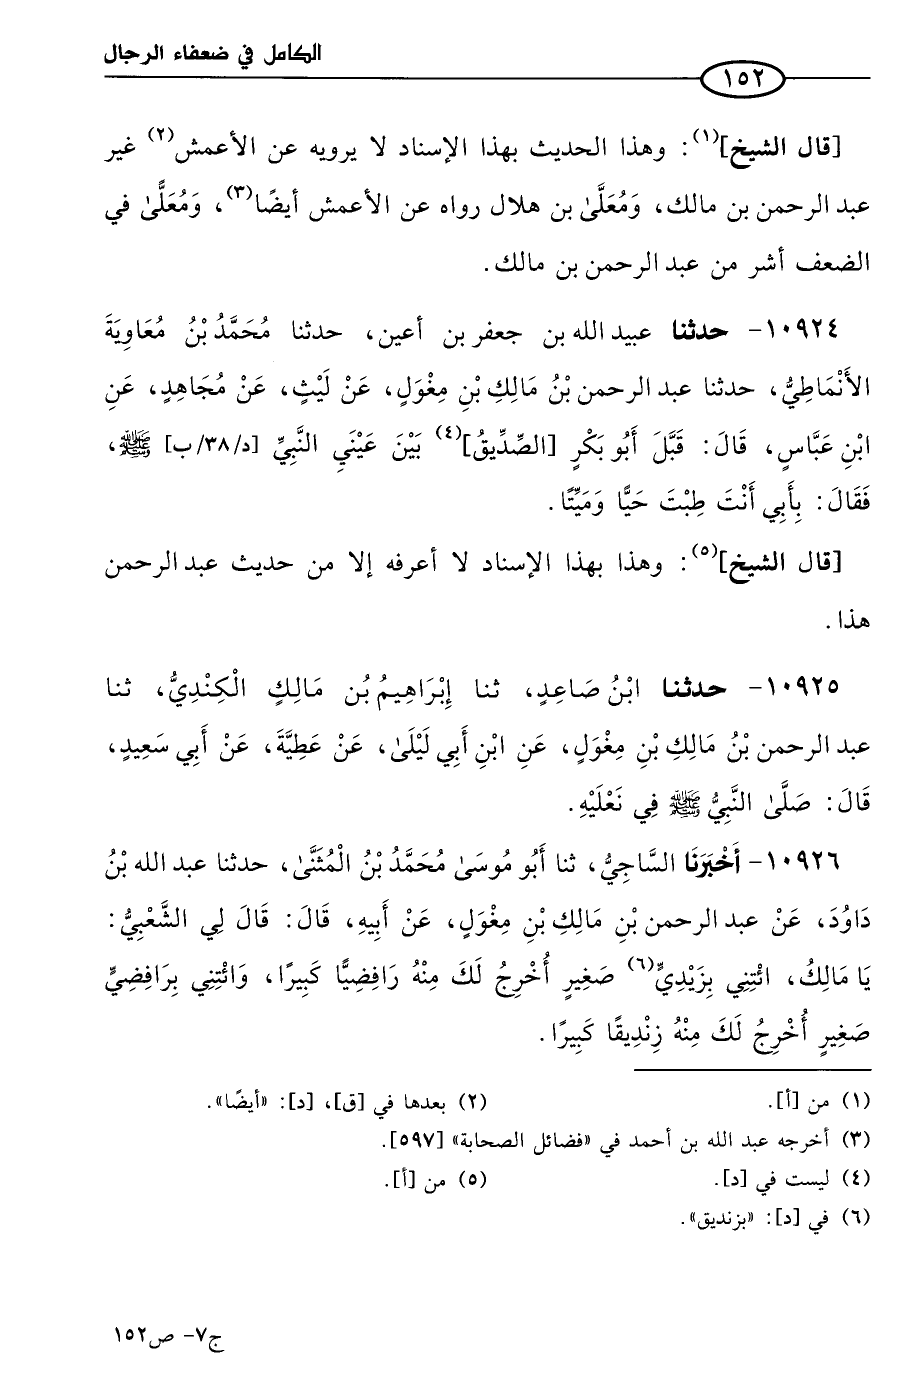 الكامل في ضعفاء الرجال
١٥٢
[قال الشيخ](١): وهذا الحديث بهذا الإسناد لا يرويه عن الأعمش(٢) غير
عبد الرحمن بن مالك، وَمُعَلَّىٰ بن هلال رواه عن الأعمش أيضًا(٣)، وَمُعَلًّىٰ في
الضعف أشر من عبد الرحمن بن مالك.
١٠٩٢٤- حدثنا عبيد الله بن جعفر بن أعين، حدثنا مُحَمَّدُ بْنُ مُعَاوِيَةَ
الأَنْمَاطِيُّ، حدثنا عبد الرحمن بْنُ مَالِكِ بْنِ مِغْوَلٍ، عَنْ لَيْثٍ، عَنْ مُجَاهِدٍ، عَنِ
ابْنِ عَبَّاسٍ، قَالَ: قَبَّلَ أَبُو بَكْرٍ [الصِّدِيقُ](٤) بَيْنَ عَيْنَيِ النَّبِيِّ [د/٣٨/ب] ﷺ،
فَقَالَ: بِأَبِي أَنْتَ طِبْتَ حَيًّا وَمَيِّتًا.
[قال الشيخ](٥): وهذا بهذا الإسناد لا أعرفه إلا من حديث عبد الرحمن
هذا.
١٠٩٢٥- حدثنا ابْنُ صَاعِدٍ، ثنا إِبْرَاهِيمُ بْن مَالِكٍ الْكِنْدِيُّ، ثنا
عبد الرحمن بْنُ مَالِكِ بْنِ مِغْوَلٍ، عَنِ ابْنِ أَبِي لَيْلَىٰ، عَنْ عَطِيَّةَ، عَنْ أَبِي سَعِيدٍ،
قَالَ: صَلَّىٰ النَّبِيُّ ﷺ فِي نَعْلَيْهِ.
١٠٩٢٦- أَخْبَرَنَا السَّاجِيُّ، ثنا أَبُو مُوسَىٰ مُحَمَّدُ بْنُ الْمُثَنَّىٰ، حدثنا عبد الله بْنُ
دَاوُدَ، عَنْ عبد الرحمن بْنِ مَالِكِ بْنِ مِغْوَلٍ، عَنْ أَبِيهِ، قَالَ: قَالَ لِي الشَّعْبِيُّ:
يَا مَالِكُ، ائْتِنِي بِزَيْدِيٍّ(٦) صَغِيرٍ أُخْرِجُ لَكَ مِنْهُ رَافِضِيًّا كَبِيرًا، وَائْتِنِي بِرَافِضِيٍّ
صَغِيرٍ أُخْرِجُ لَكَ مِنْهُ زِنْدِيقًا كَبِيرًا.
(١) من [أ]. (٢) بعدها في [ق]، [د]: «أيضًا».
(٣) أخرجه عبد الله بن أحمد في «فضائل الصحابة» [٥٩٧].
(٤) ليست في [د]. (٥) من [أ].
(٦) في [د]: «بزنديق».
ج٧- ص١٥٢